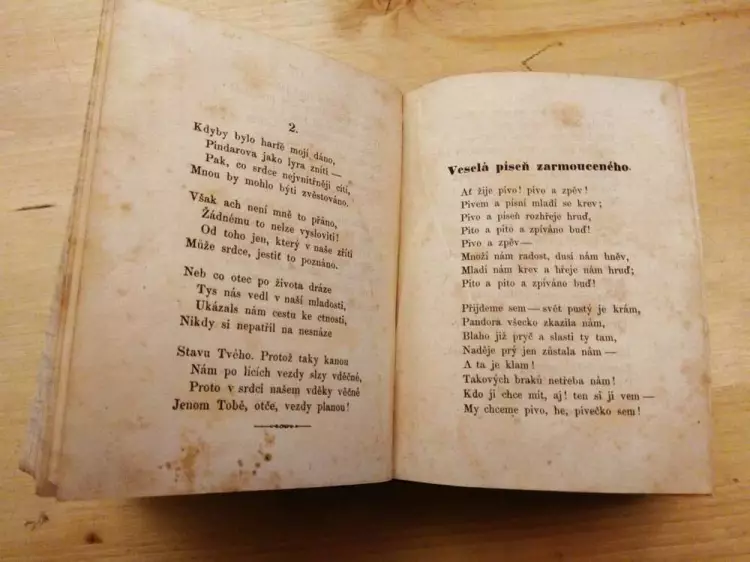 2.
Kdyby bylo harfě mojí dáno,
Pindarova jako lyra zníti —
Pak, co srdce nejvnitřněji cítí,
Mnou by mohlo býti zvěstováno.
Však ach není mně to přáno,
Žádnému to nelze vysloviti!
Od toho jen, který v naše zříti
Může srdce, jestiť to poznáno.
Neb co otec po života dráze
Tys nás vedl v naší mladosti,
Ukázals nám cestu ke ctnosti,
Nikdy si nepatřil na nesnáze
Stavu Tvého. Protož taky kanou
Nám po lících vezdy slzy vděčné,
Proto v srdci našem vděky věčné
Jenom Tobě, otče, vezdy planou!
Veselá píseň zarmouceného.
Ať žije pivo! pivo a zpěv!
Pivem a písní mladí se krev;
Pivo a píseň rozhřeje hruď,
Pito a pito a zpíváno buď!
Pivo a zpěv —
Množí nám radost, dusí nám hněv,
Mladí nám krev a hřeje nám hruď;
Pito a pito a zpíváno buď!
Přijdeme sem — svět pustý je krám,
Pandora všecko zkazila nám,
Blaho již pryč a slasti ty tam,
Naděje prý jen zůstala nám —
A ta je klam!
Takových braků netřeba nám!
Kdo ji chce mít, aj! ten si ji vem —
My chceme pivo, he, pivečko sem!